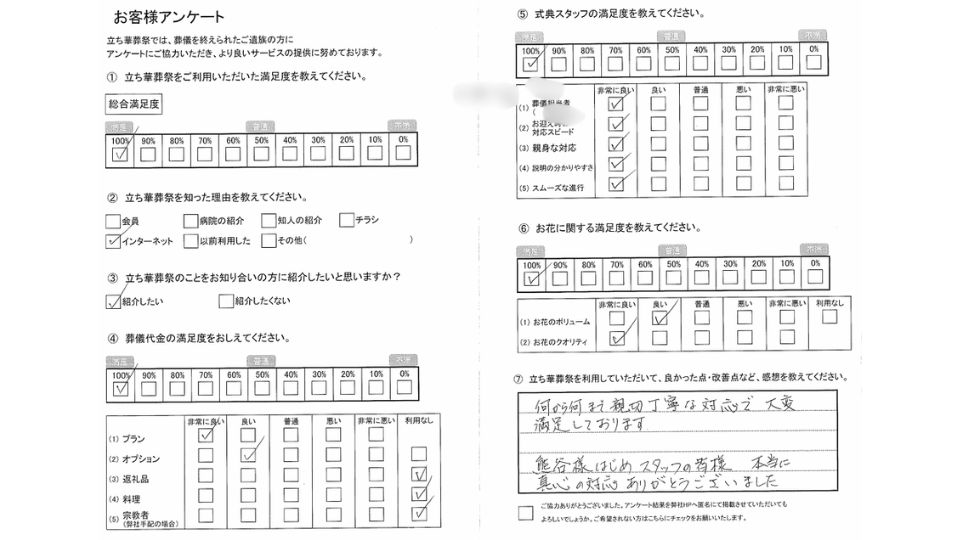 お客様アンケート
立ち華葬祭では、葬儀を終えられたご遺族の方に
アンケートにご協力いただき、より良いサービスの提供に努めております。
① 立ち華葬祭をご利用いただいた満足度を教えてください。
総合満足度
満足 普通 不満
100% 90% 80% 70% 60% 50% 40% 30% 20% 10% 0%
② 立ち華葬祭を知った理由を教えてください。
会員 病院の紹介 知人の紹介 チラシ
インターネット 以前利用した その他( )
③ 立ち華葬祭のことをお知り合いの方に紹介したいと思いますか?
紹介したい 紹介したくない
④ 葬儀代金の満足度をおしえてください。
満足 普通 不満
100% 90% 80% 70% 60% 50% 40% 30% 20% 10% 0%
非常に良い 良い 普通 悪い 非常に悪い 利用なし
(1) プラン
(2) オプション
(3) 返礼品
(4) 料理
(5) 宗教者
(弊社手配の場合)
⑤ 式典スタッフの満足度を教えてください。
満足 普通 不満
100% 90% 80% 70% 60% 50% 40% 30% 20% 10% 0%
非常に良い 良い 普通 悪い 非常に悪い
(1) 葬儀担当者
(
(2) お迎え時の
対応スピード
(3) 親身な対応
(4) 説明の分かりやすさ
(5) スムーズな進行
⑥ お花に関する満足度を教えてください。
満足 普通 不満
100% 90% 80% 70% 60% 50% 40% 30% 20% 10% 0%
非常に良い 良い 普通 悪い 非常に悪い 利用なし
(1) お花のボリューム
(2) お花のクオリティ
⑦ 立ち華葬祭を利用していただいて、良かった点・改善点など、感想を教えてください。
何から何まで親切丁寧な対応で 大変
満足しております
熊谷様はじめスタッフの皆様 本当に
真心の対応ありがとうございました
ご協力ありがとうございました。アンケート結果を弊社HPへ匿名にて掲載させていただいても
よろしいでしょうか。ご希望されない方はこちらにチェックをお願いいたします。